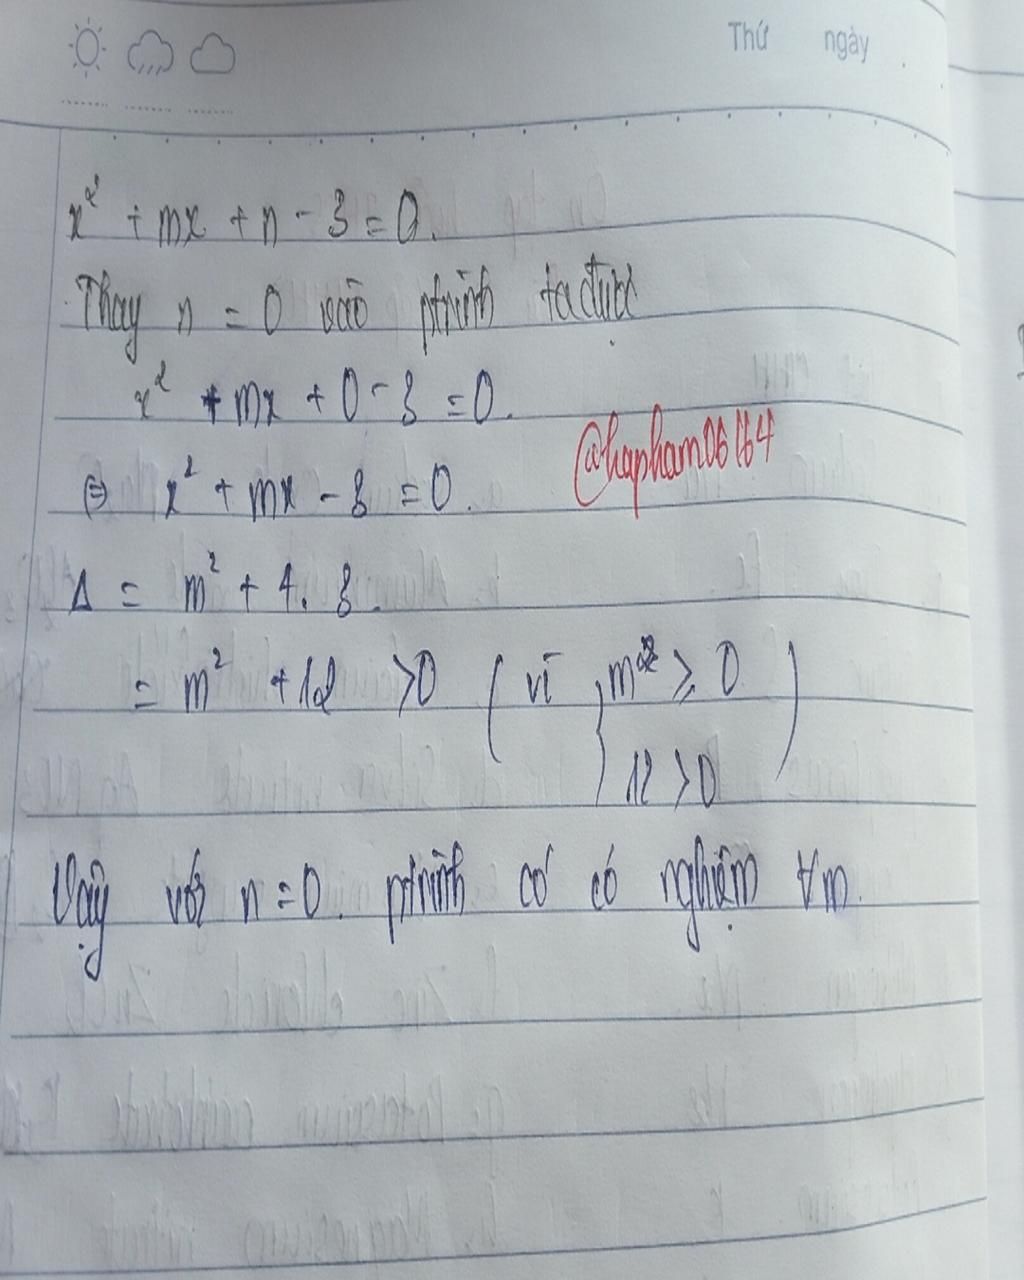 Thứ ngày
x² + mx + n - 3 = 0.
Thay n = 0 vào ptrình ta được
x² + mx + 0 - 3 = 0.
⇔ x² + mx - 3 = 0.
@hapham06164
Δ = m² + 4. 3.
= m² + 12 > 0 ( vì { m² ≥ 0
12 > 0 )
Vậy với n = 0. ptrình có có nghiệm ∀m.